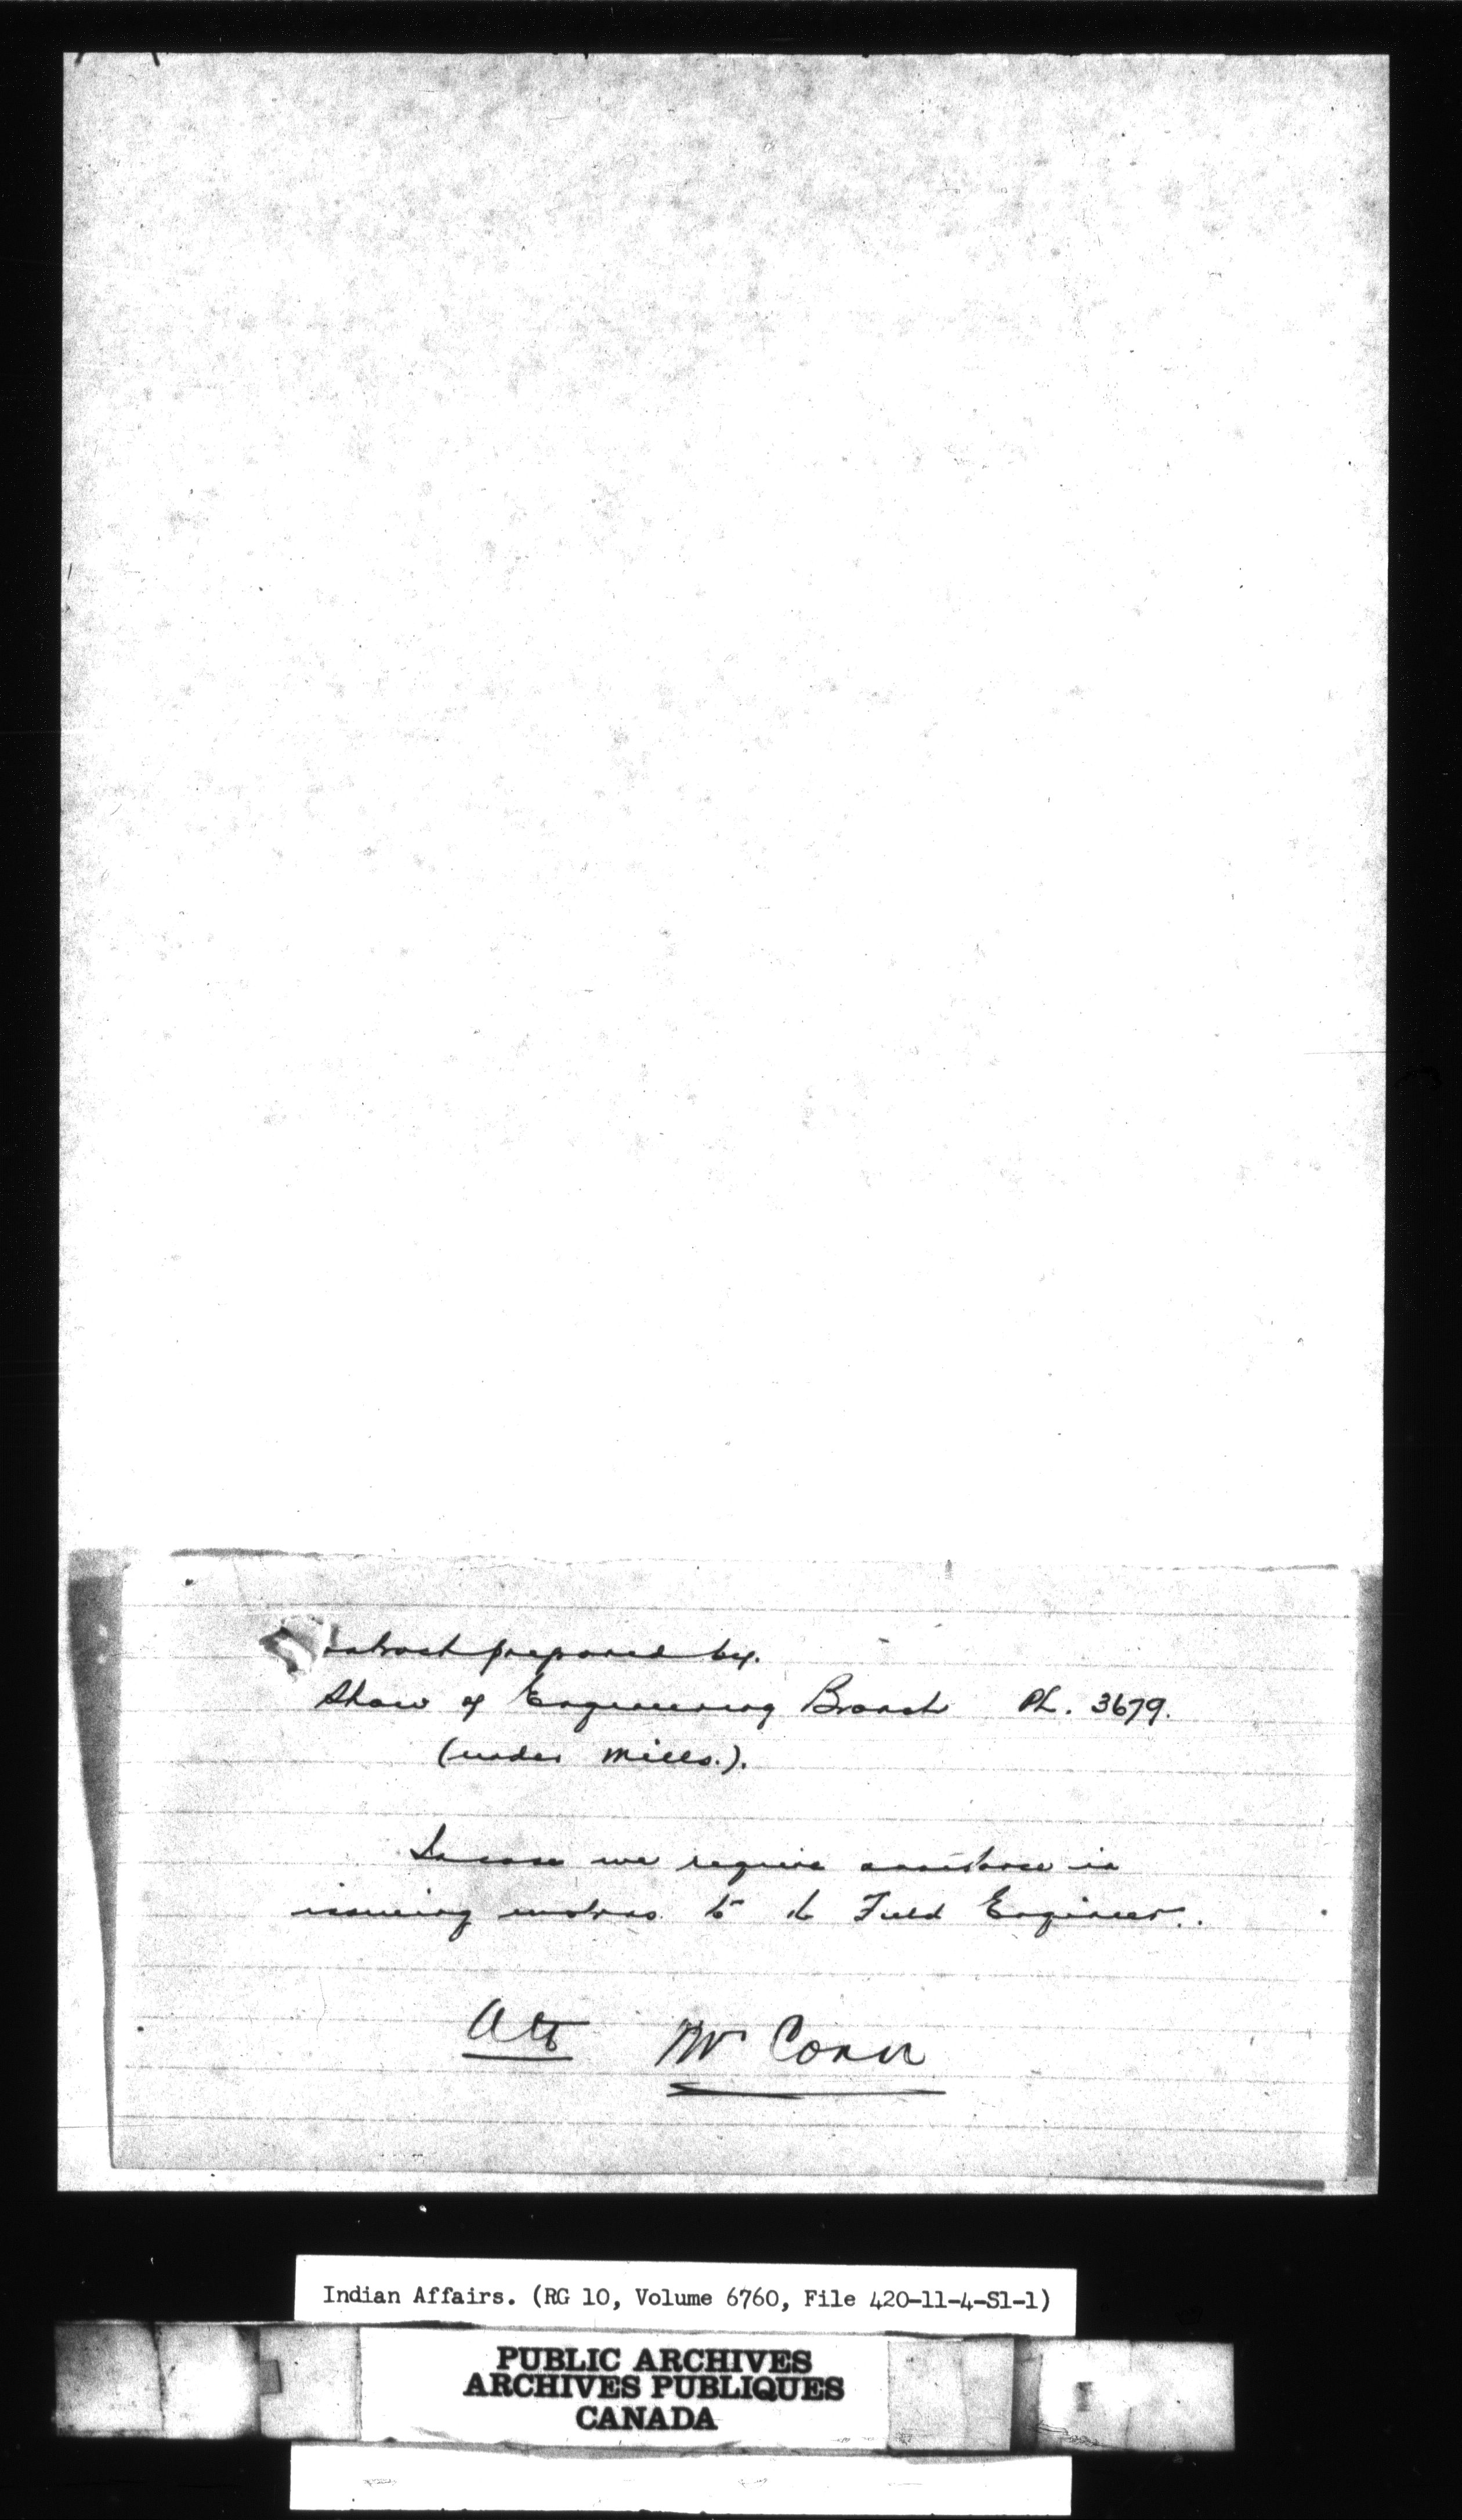 Contract prepared by.
Shaw of Engineering Branch Ph. 3679.
(under Mills.).
In case we require assistance in
issuing instrns to the Field Engineer.
Att Mr Conn
Indian Affairs. (RG 10, Volume 6760, File 420-11-4-S1-1)
PUBLIC ARCHIVES
ARCHIVES PUBLIQUES
CANADA